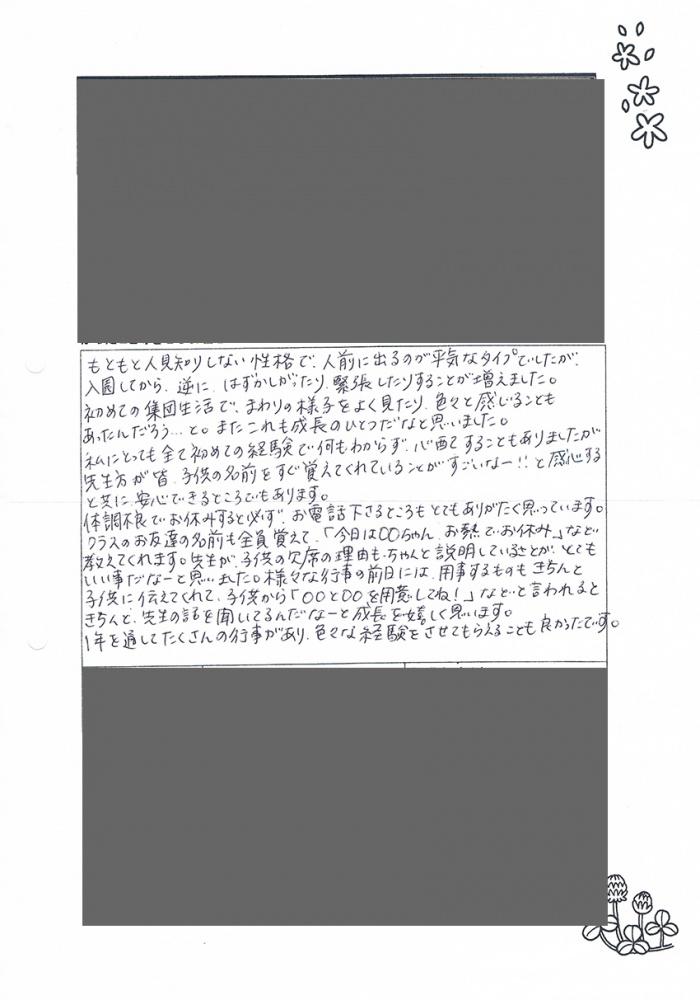 もともと人見知りしない性格で、人前に出るのが平気なタイプでしたが、
入園してから、逆に、はずかしがったり、緊張したりすることが増えました。
初めての集団生活で、まわりの様子をよく見たり、色々と感じることも
あったんだろう…と。またこれも成長のひとつだなと思いました。
私にとっても全て初めての経験で何もわからず、心配することもありましたが
先生方が皆、子供の名前をすぐ覚えてくれていることがすごいなー!!と感心する
と共に、安心できるところでもあります。
体調不良でお休みすると必ず、お電話下さるところもとてもありがたく思っています。
クラスのお友達の名前も全員覚えて、「今日は〇〇ちゃん、お熱でお休み」など
教えてくれます。先生が、子供の欠席の理由も、ちゃんと説明していることが、とても
いい事だなーと思いました。様々な行事の前日には、用事するものもきちんと
子供に伝えてくれて、子供から「〇〇と〇〇を用意してね！」などと言われると
きちんと、先生の話を聞いてるんだなーと成長を嬉しく思います。
1年を通してたくさんの行事があり、色々な経験をさせてもらえることも良かったです。